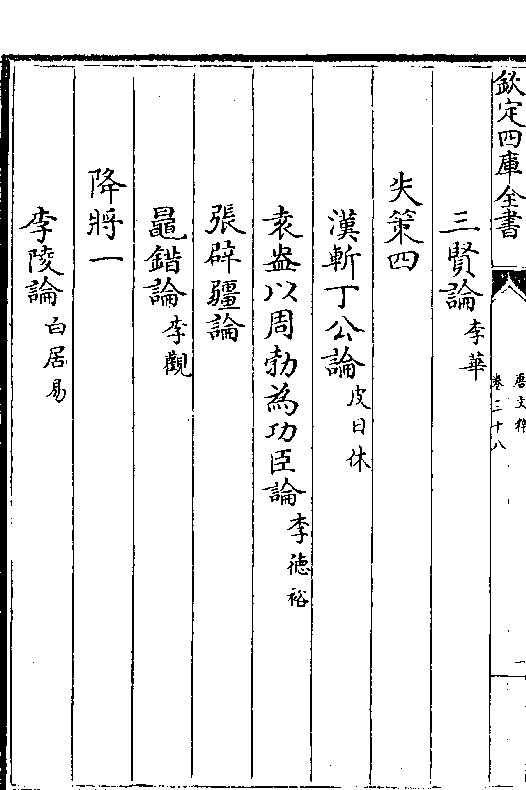 欽定四庫全書
唐文粹
卷三十八
三賢論 李華
失策四
漢斬丁公論 皮日休
袁盎以周勃為功臣論 李德裕
張辟疆論
鼂錯論 李觀
降將一
李陵論 白居易